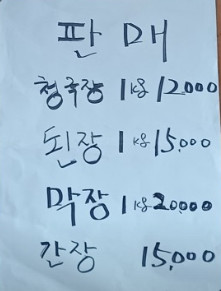 판매
청국장 1kg 12000
된장 1kg 15,000
막장 1kg 20,000
간장 15,000